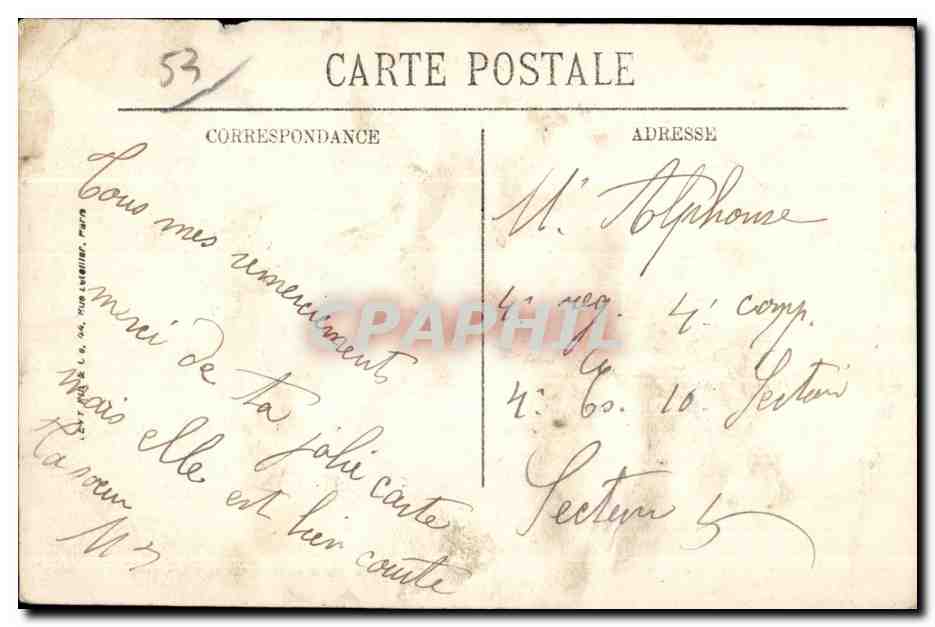 53
CARTE POSTALE
CORRESPONDANCE
ADRESSE
Tous mes remerciements
merci de ta jolie carte
mais elle est bien courte
Ta sœur
M
Mr Alphonse
4e reg. 4e comp.
4e 10e Section
Secteur 5
44, Rue Letellier, Paris
CPAPHIL